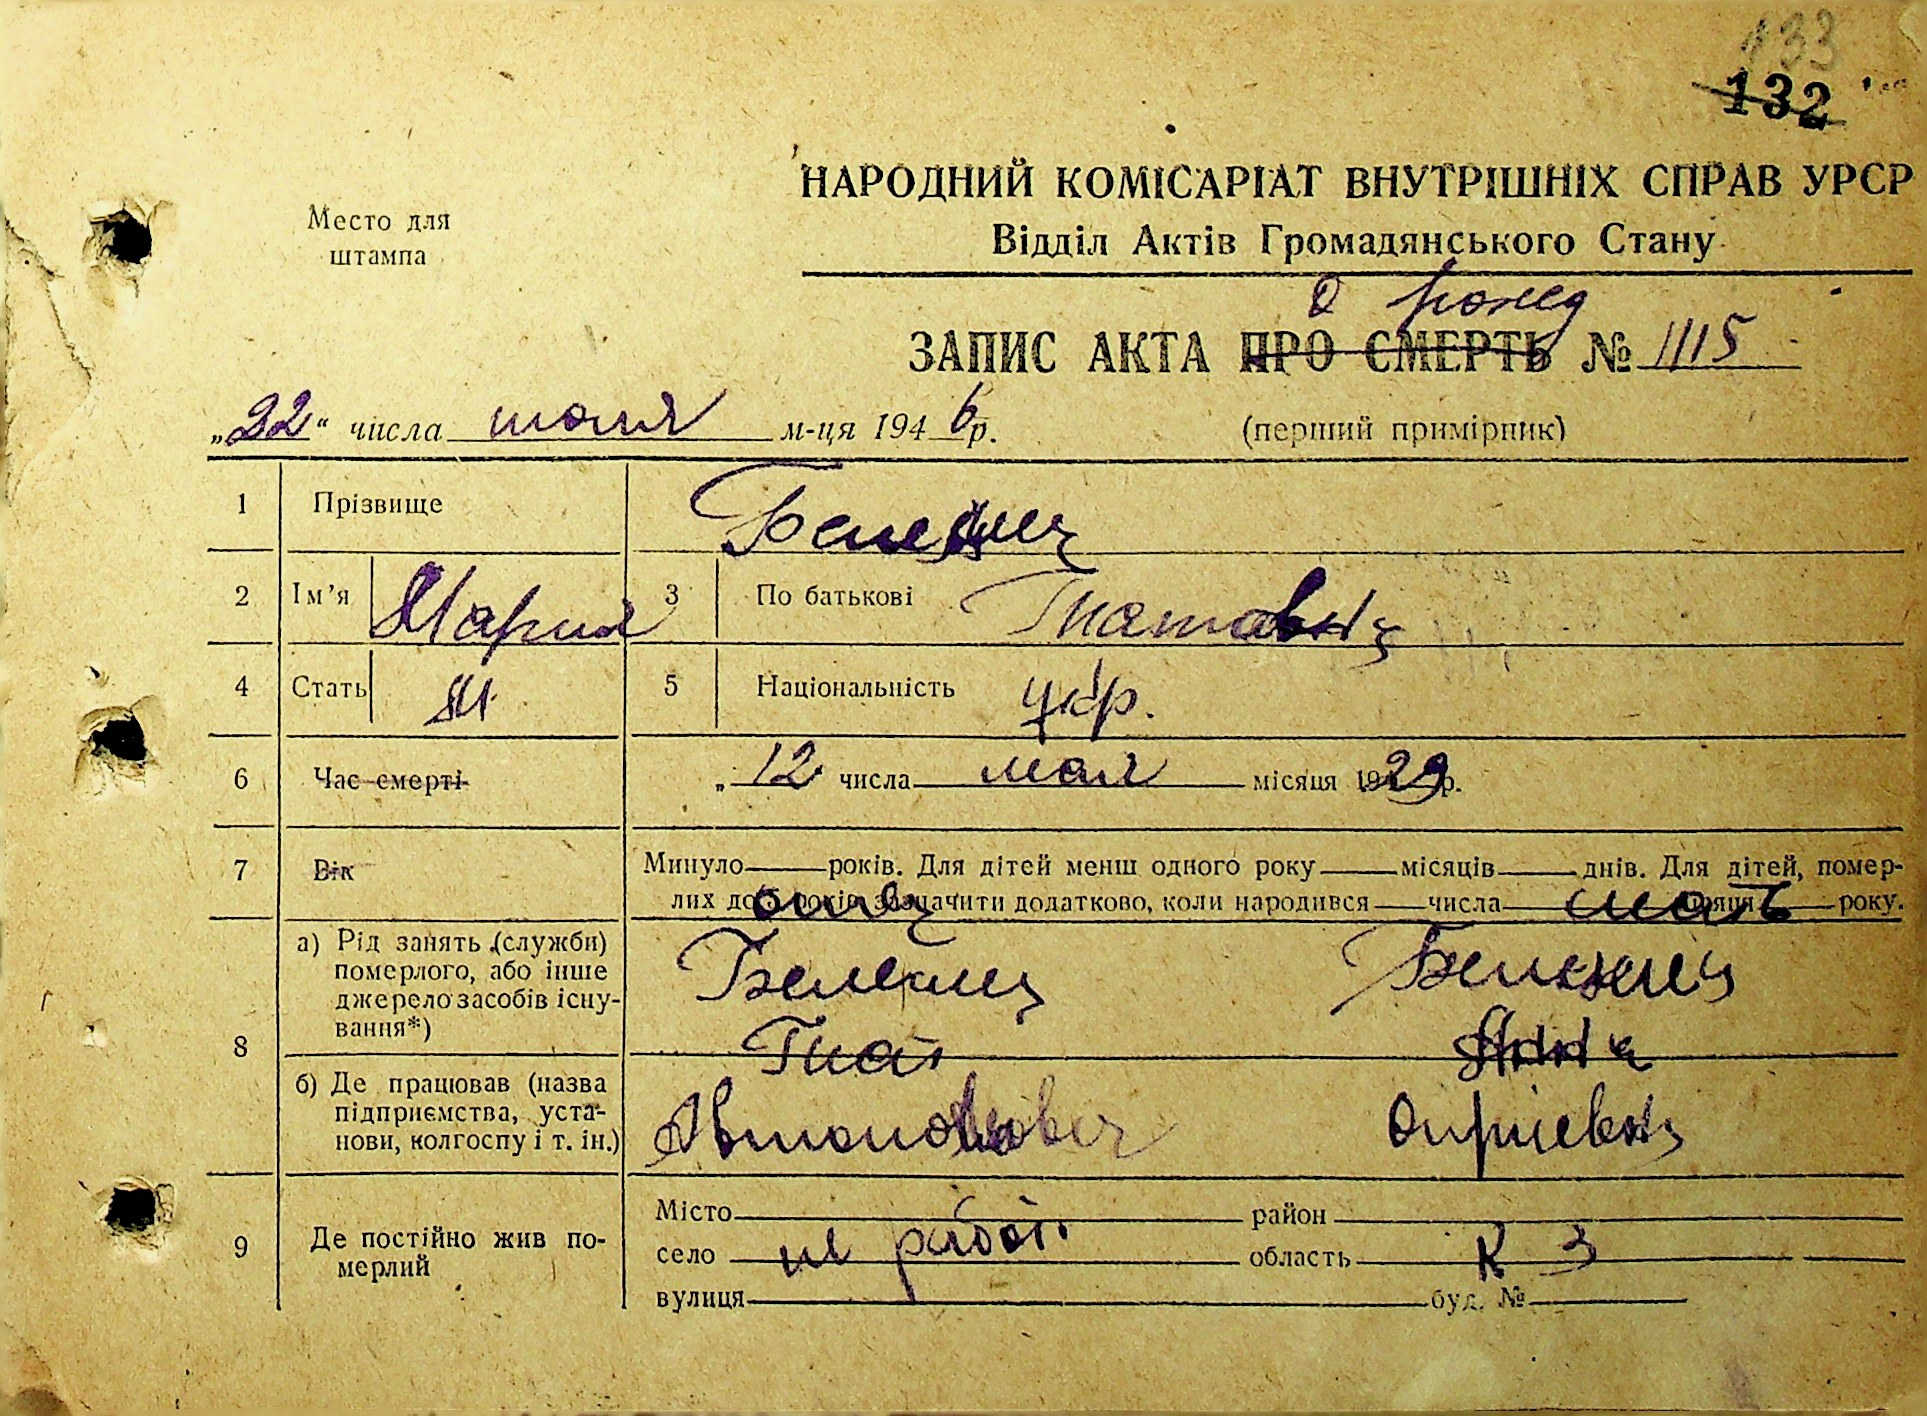 133
132
НАРОДНИЙ КОМІСАРІАТ ВНУТРІШНІХ СПРАВ УРСР
Место для
штампа
Відділ Актів Громадянського Стану
о рожд
ЗАПИС АКТА ПРО СМЕРТЬ № 1115
„22“ числа июля м-ця 1946 р.
(перший примірник)
1 Прізвище
2 Ім’я Мария 3 По батькові Гнатовна
4 Стать 5 Національність укр.
6 Час смерті „12 числа мая місяця 1929 р.
7 Вік Минуло років. Для дітей менш одного року місяців днів. Для дітей, помер-
лих до років зазначити додатково, коли народився числа місяця року.
отец мать
8 а) Рід занять (служби)
померлого, або інше
джерело засобів існу-
вання*)
Гнат Анна
б) Де працював (назва
підприємства, уста-
нови, колгоспу і т. ін.)
9 Де постійно жив по-
мерлий
Місто район
село не работ. область к з
вулиця буд. №